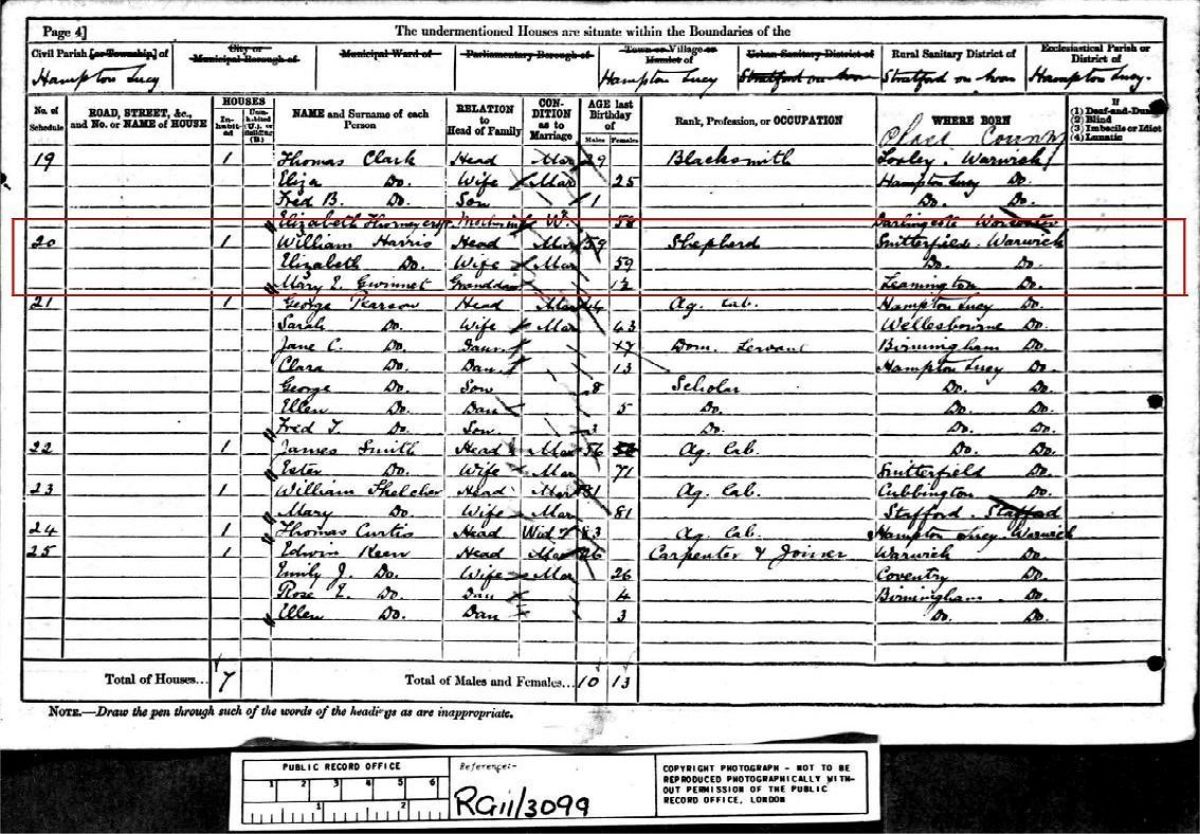 Page 4]
The undermentioned Houses are situate within the Boundaries of the
Civil Parish [or Township] of
City or Municipal Borough of
Municipal Ward of
Parliamentary Borough of
Town or Village or Hamlet of
Urban Sanitary District of
Rural Sanitary District of
Ecclesiastical Parish or District of
Hampton Lucy Hampton Lucy Stratford on Avon Stratford on Avon Hampton Lucy.
No. of Schedule
ROAD, STREET, &c., and No. or NAME of HOUSE
HOUSES
In-habit-ed
Unin-habited (U.), or Building (B.)
NAME and Surname of each Person
RELATION to Head of Family
CON-DITION as to Marriage
AGE last Birthday of
Males Females
Rank, Profession, or OCCUPATION
WHERE BORN
Place County
If
(1) Deaf-and-Dumb
(2) Blind
(3) Imbecile or Idiot
(4) Lunatic
19 1 Thomas Clark Head Mar 29 Blacksmith Loxley. Warwick
Eliza Do. Wife Mar 25 Hampton Lucy Do.
Fred B. Do. Son 1 Do. Do.
Elizabeth W. 58 Worcester
20 1 William Harris Head Mar 59 Shepherd Snitterfield. Warwick
Elizabeth Do. Wife Mar 59 Do. Do.
Mary E. Gwinnet Granddau Leamington Do.
21 1 George Pearson Head Mar 44 Ag. Lab. Hampton Lucy Do.
Sarah Do. Wife Mar 43 Wellesbourne Do.
Jane C. Do. Daur. 17 Dom. Servant Birmingham Do.
Clara Do. Dau. 13 Hampton Lucy Do.
George Do. Son 8 Scholar Do. Do.
Ellen Do. Dau 5 Do. Do. Do.
Fred T. Do. Son 3 Do. Do. Do.
22 1 James Smith Head Mar 56 Ag. Lab. Do. Do.
Ester Do. Wife Mar 71 Snitterfield Do.
23 1 William Head Mar 81 Ag. Lab. Cubbington Do.
Mary Do. Wife Mar 81 Stafford. Stafford
24 1 Thomas Curtis Head Widr 83 Ag. Lab. Hampton Lucy. Warwick
25 1 Edwin Keen Head Mar 26 Carpenter & Joiner Warwick Do.
Emily J. Do. Wife Mar 26 Coventry Do.
Rose E. Do. Dau 4 Birmingham. Do.
Ellen Do. Dau 3 Do. Do.
Total of Houses... 7 Total of Males and Females... 10 13
NOTE.—Draw the pen through such of the words of the headings as are inappropriate.
PUBLIC RECORD OFFICE
1 2 3 4 5 6
1 2
Reference:-
RG11/3099
COPYRIGHT PHOTOGRAPH - NOT TO BE
REPRODUCED PHOTOGRAPHICALLY WITH-
OUT PERMISSION OF THE PUBLIC
RECORD OFFICE, LONDON